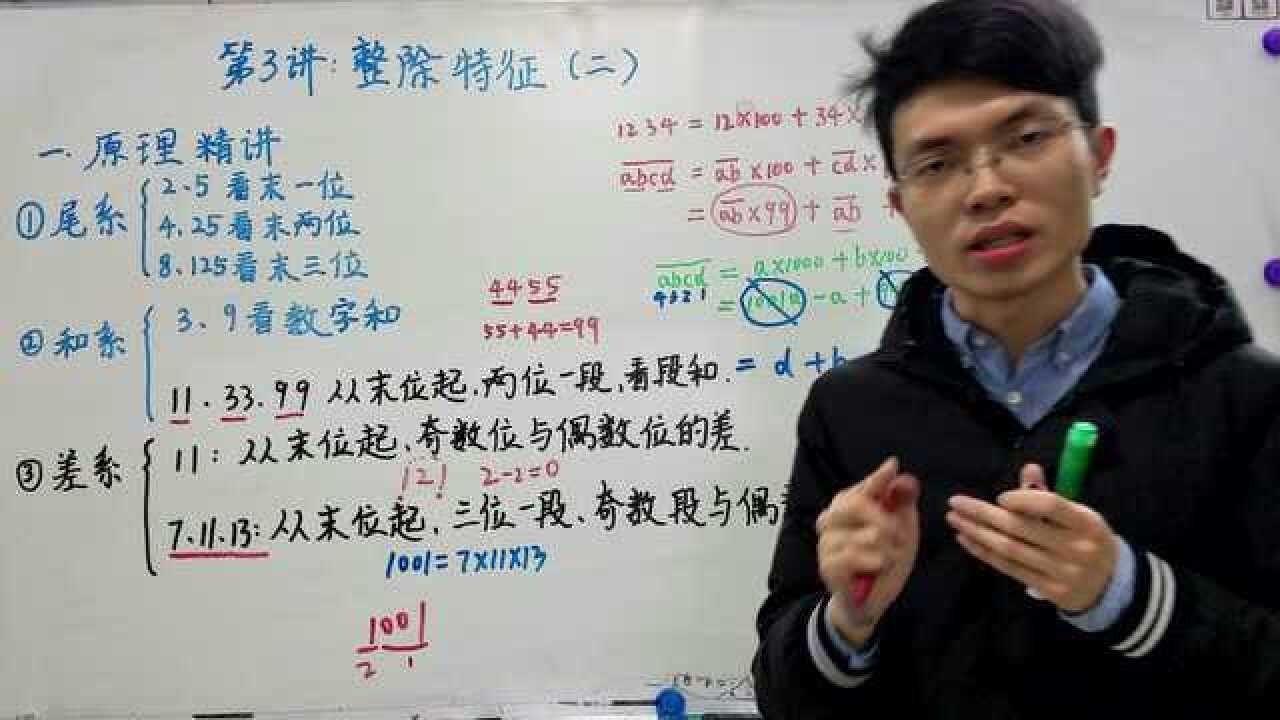 第3讲:整除特征(二)
一.原理精讲
①尾系
2.5看末一位
4.25看末两位
8.125看末三位
②和系
3、9看数字和
11.33.99 从末位起.两位一段,看段和.
③差系
11:从末位起、奇数位与偶数位的差.
121 2-2=0
7.11.13:从末位起,三位一段、奇数段与偶
1001=7×11×13
1001
2 1
4455
55+44=99
1234=12×100+34×
abcd=ab×100+cd×
=ab×99+ab
abcd=a×1000+b×100
4321
-a+
=d+b